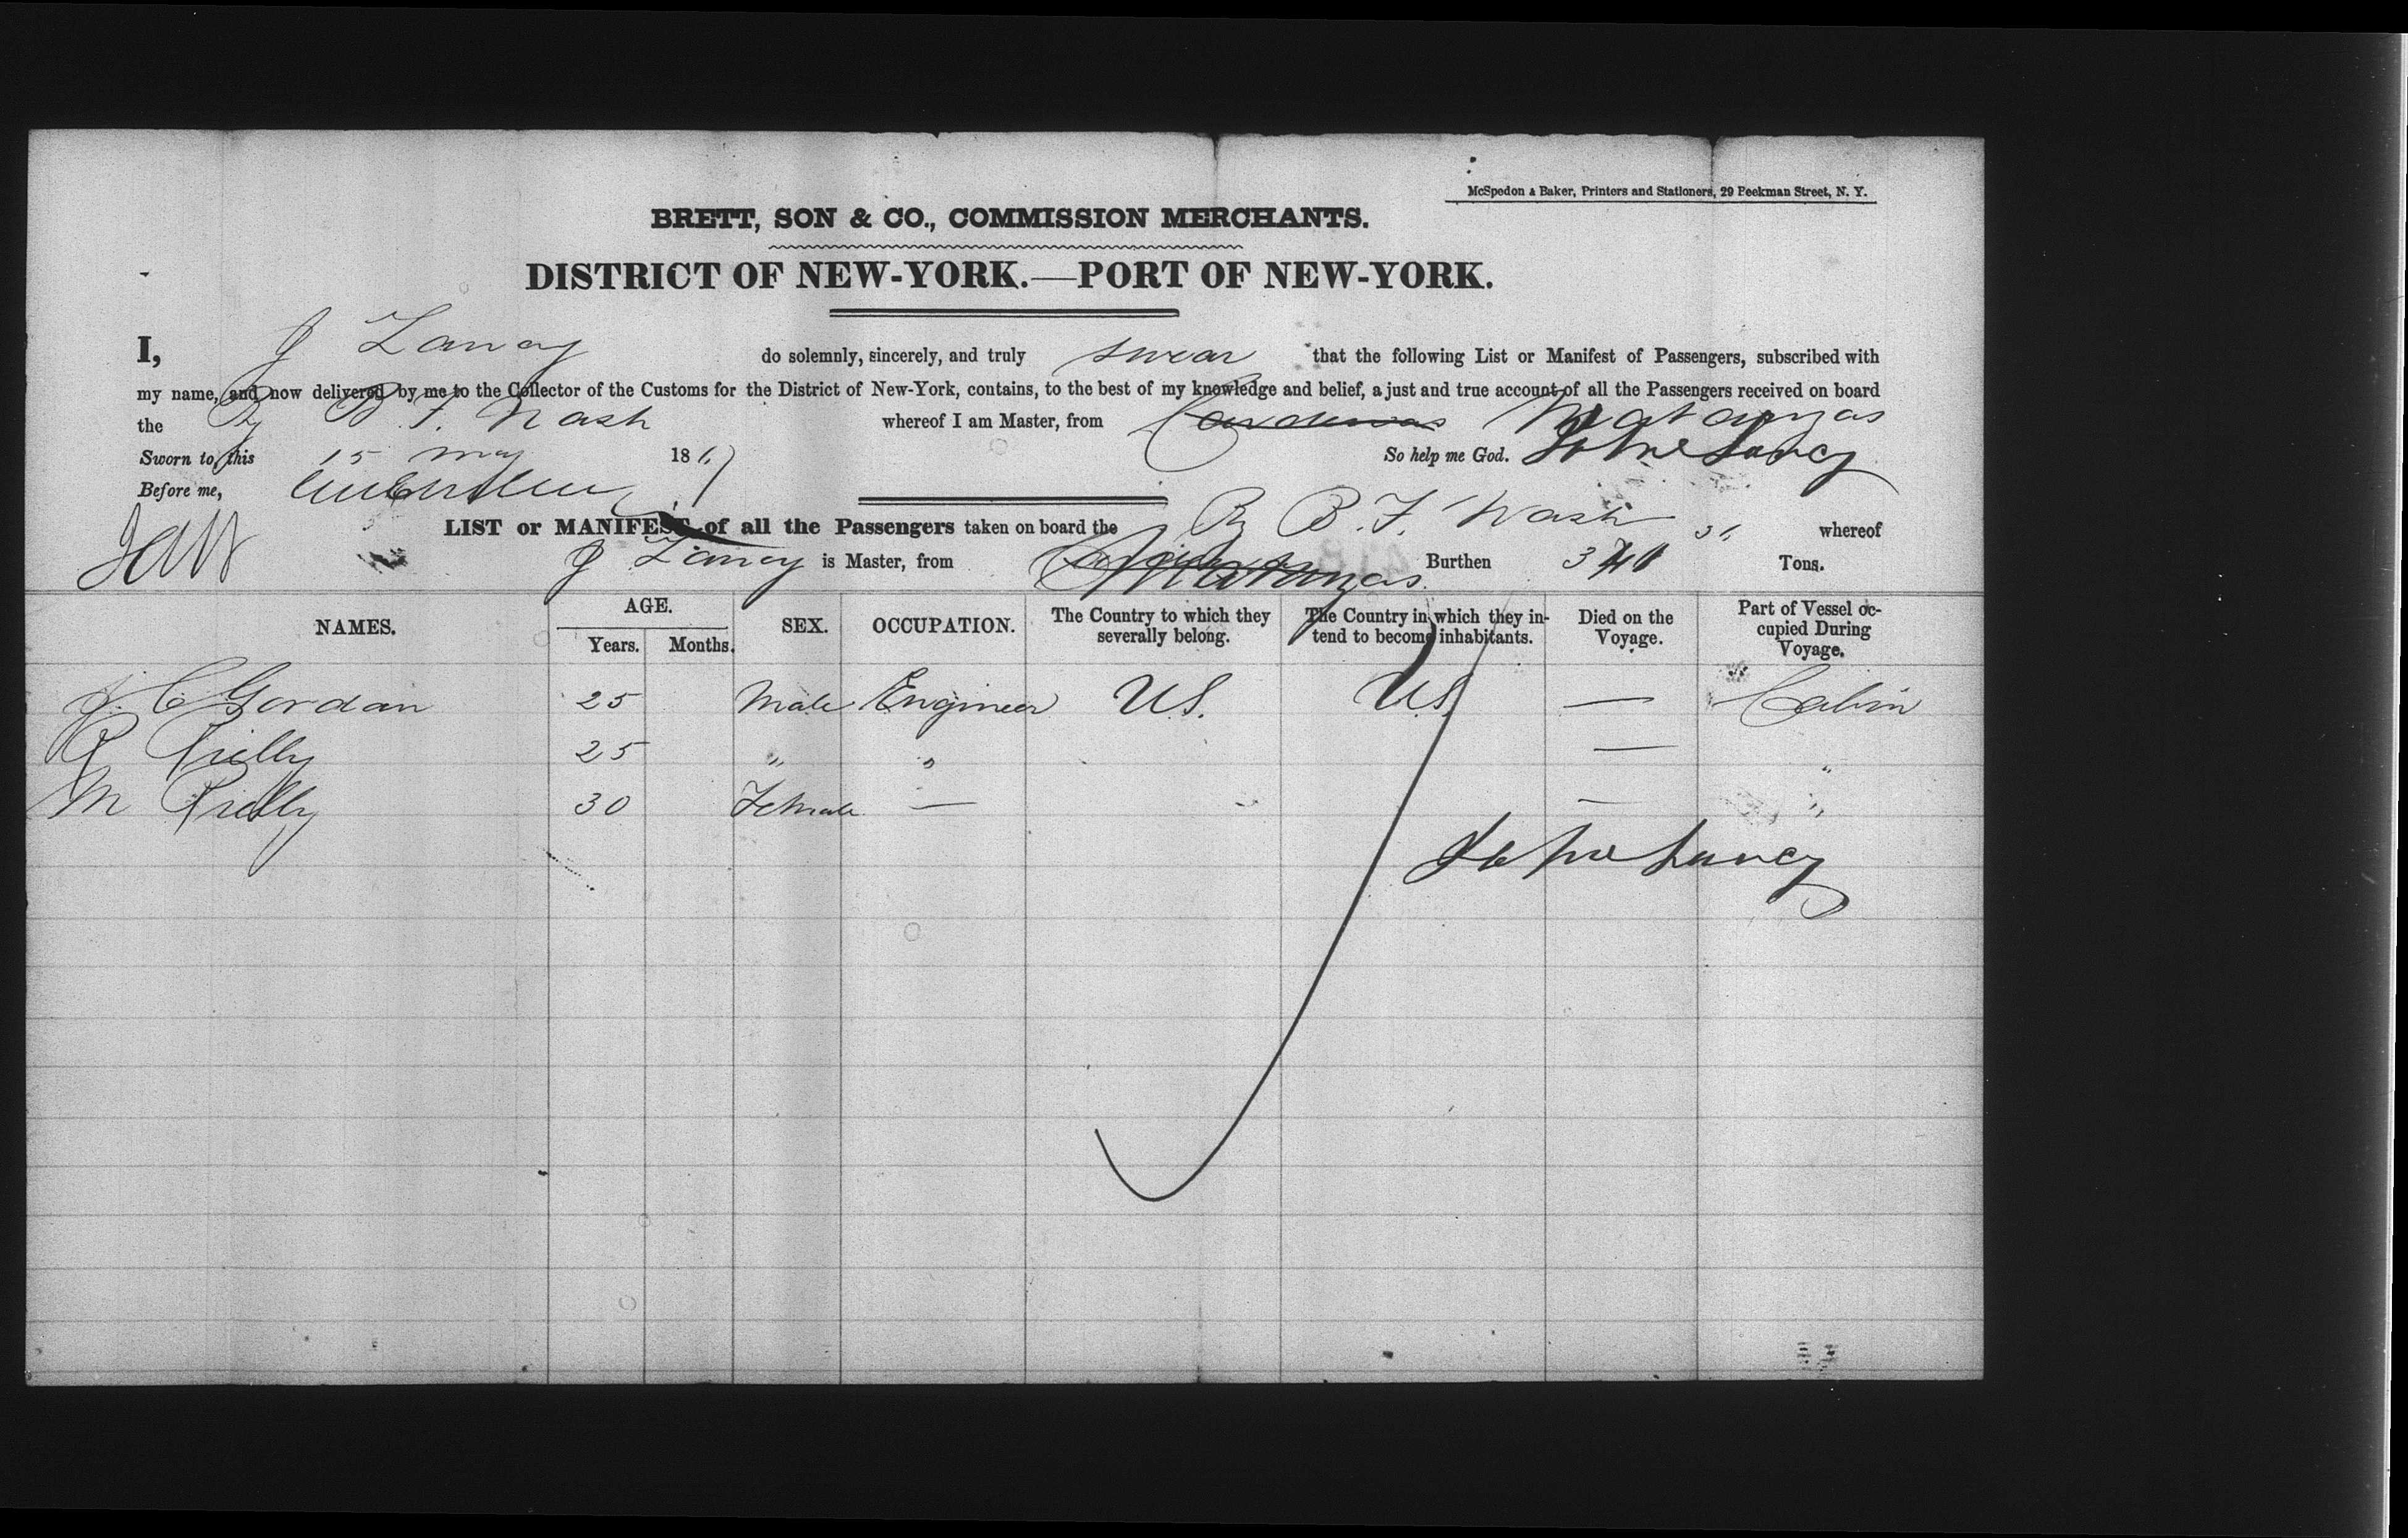 McSpedon & Baker, Printers and Stationers, 29 Beekman Street, N. Y.
BRETT, SON & CO., COMMISSION MERCHANTS.
DISTRICT OF NEW-YORK.—PORT OF NEW-YORK.
I, J Lancy do solemnly, sincerely, and truly swear that the following List or Manifest of Passengers, subscribed with
my name, and now delivered by me to the Collector of the Customs for the District of New-York, contains, to the best of my knowledge and belief, a just and true account of all the Passengers received on board
the Bg B. F. Nash whereof I am Master, from Cardenas Matanzas
Sworn to, this 15 May 186 So help me God. Lancy
Before me,
LIST or MANIFEST of all the Passengers taken on board the Bg B. F. Nash whereof
J Lancy is Master, from Matanzas Burthen Tons.
NAMES. AGE. Years. Months. SEX. OCCUPATION. The Country to which they severally belong. The Country in which they intend to become inhabitants. Died on the Voyage. Part of Vessel occupied During Voyage.
J. C Gordan 25 Male Engineer US. US. — Cabin
R Rielly 25 " " — "
M Rielly 30 Female — — "
Lancy